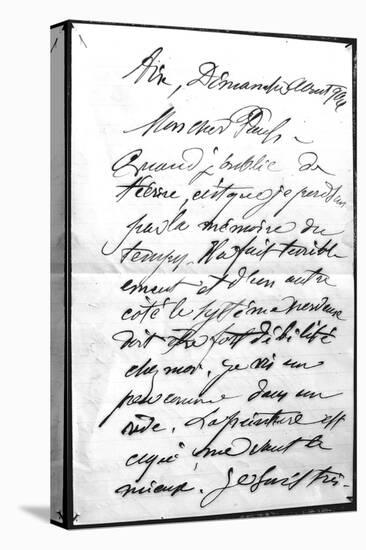 Aix, Dimanche Aout
Mon cher Paul,
Quand j'oublie de
t'écrire, c'est que je perds un
peu la mémoire du
temps. Il a fait terribl
ement et d'un autre
côté le système nerveux
doit être fort débilité
chez moi. je vis un
peu comme dans un
vide. La peinture est
ce qui me vaut le
mieux. Je suis très-